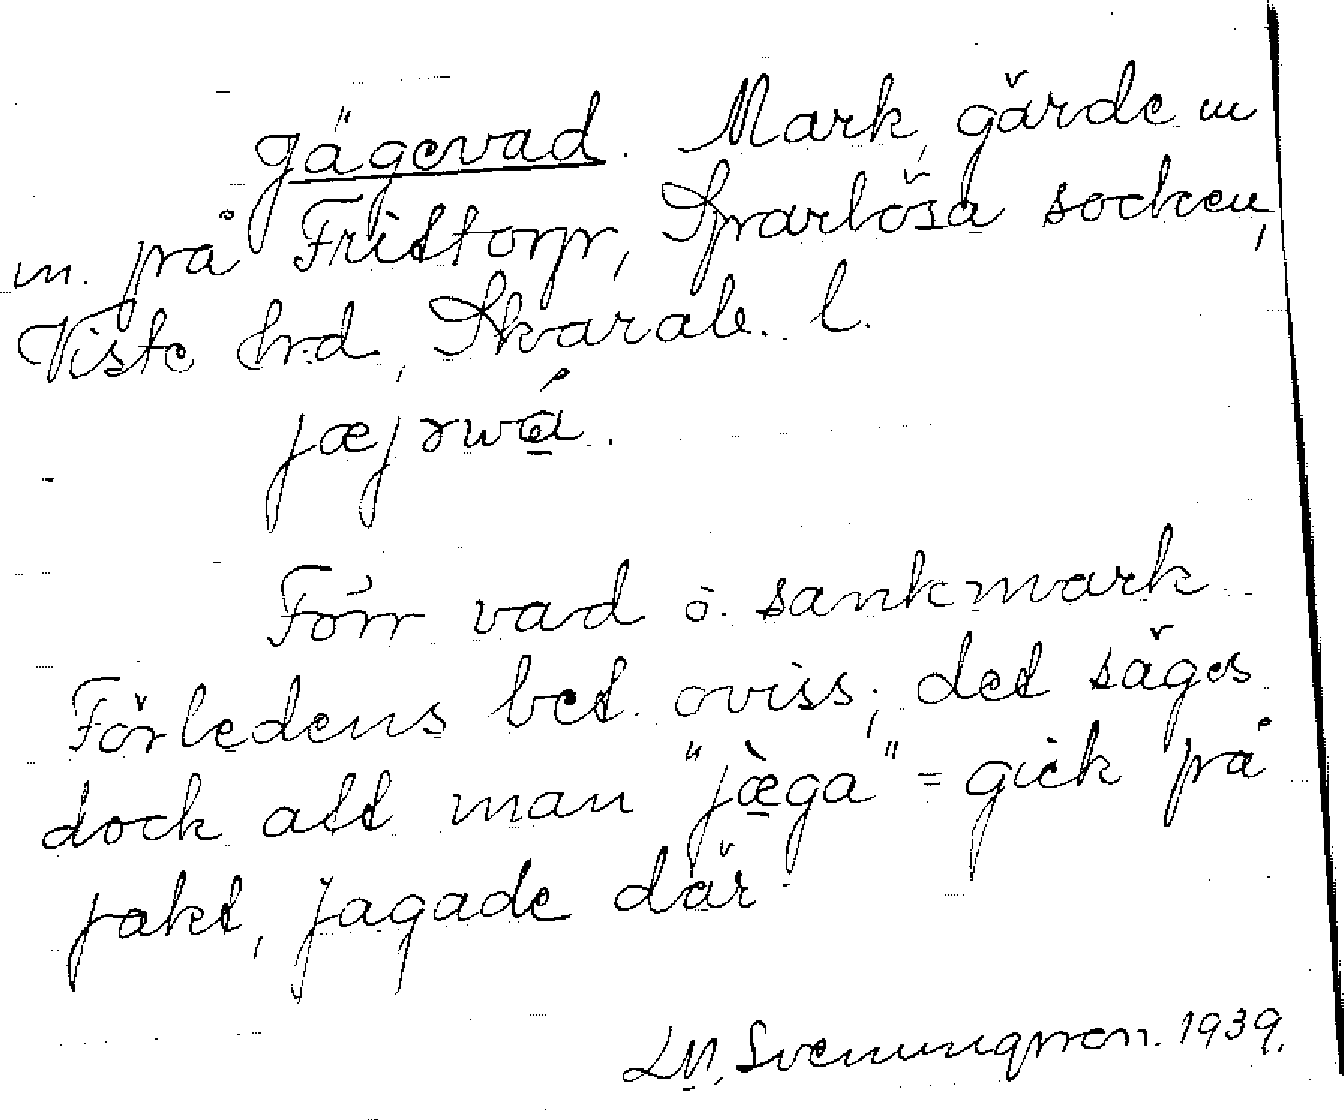 Jägevad. Mark, gärde m
m. på Fristorp, Sparlösa socken,
Viste hrd, Skarab. l.
jæjɤwá.
Förr vad ö. sankmark.
Förledens bet. oviss; det säges
dock att man "jæ̀ga" = gick på
jakt, jagade där.
1939.